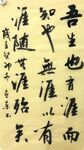 吾生也有涯而
知也無涯以有
涯隨無涯殆矣